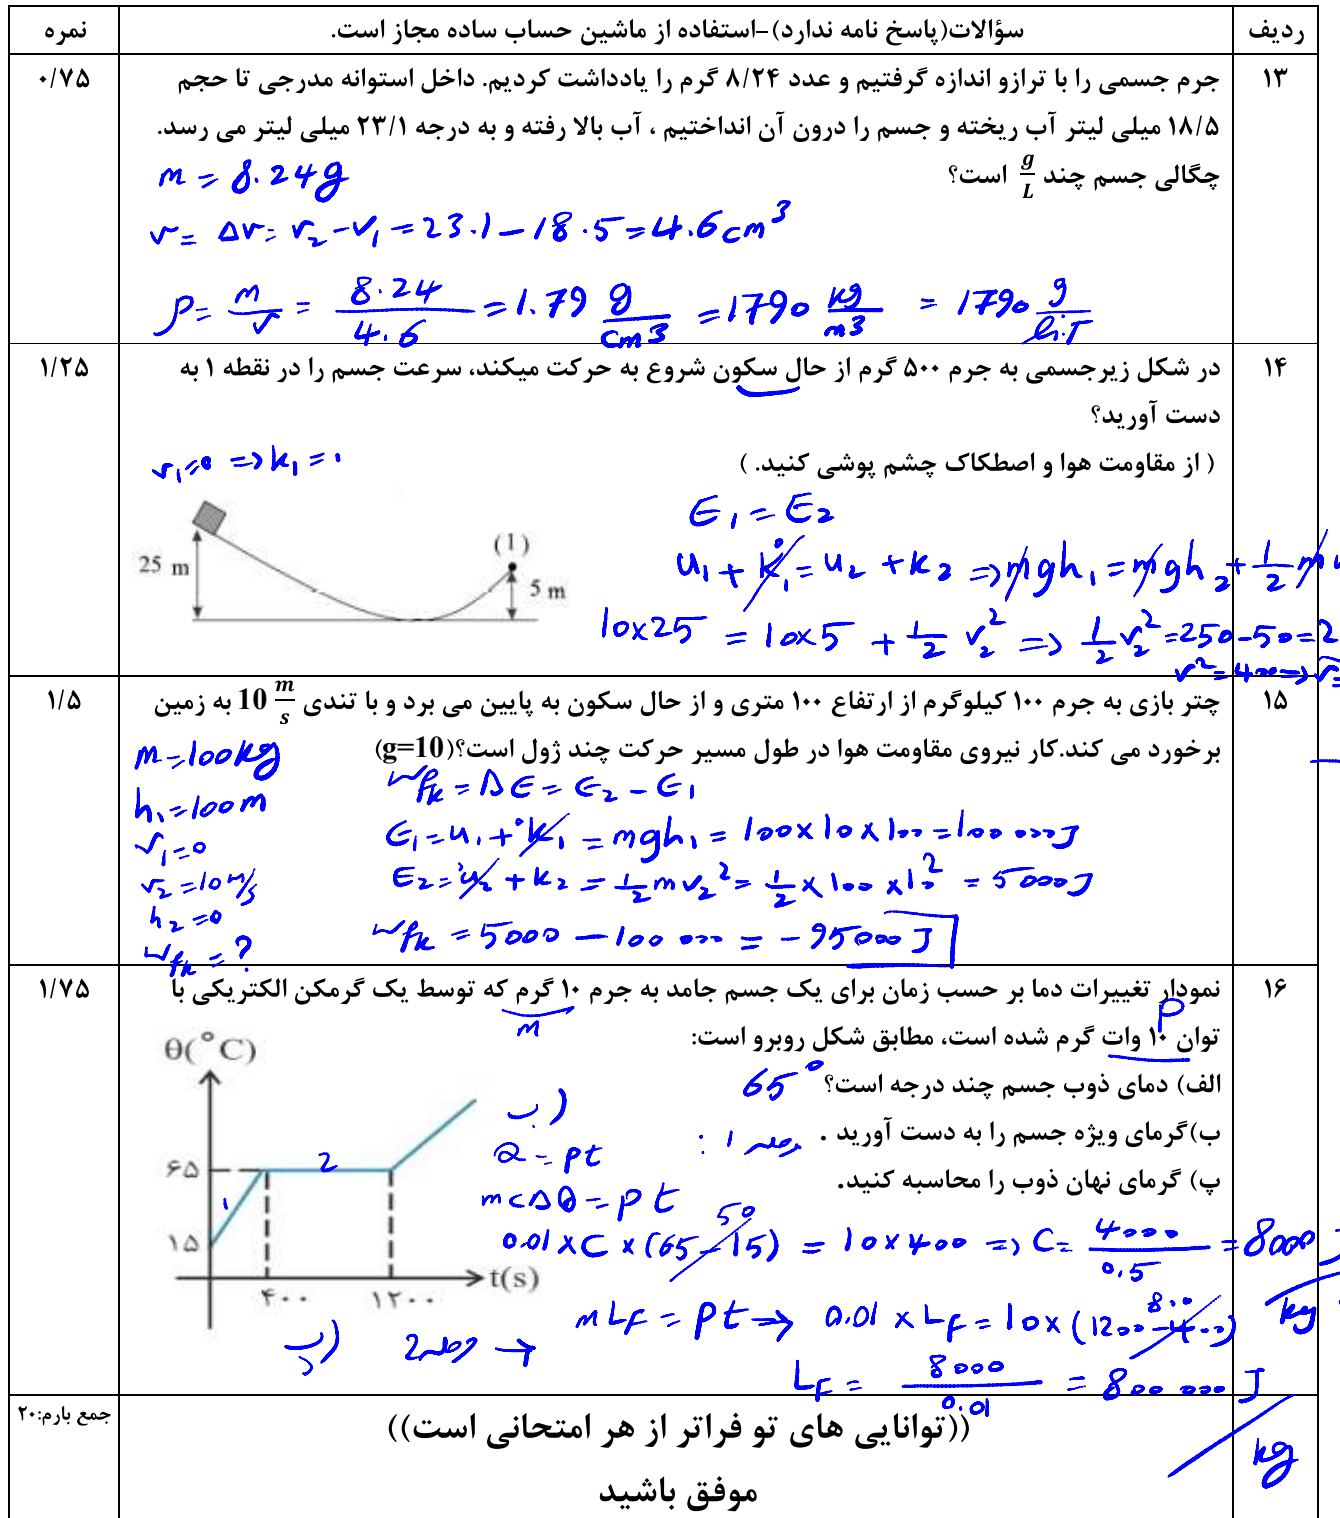 ردیف	سؤالات(پاسخ نامه ندارد)-استفاده از ماشین حساب ساده مجاز است.	نمره
۱۳	جرم جسمی را با ترازو اندازه گرفتیم و عدد ۸/۲۴ گرم را یادداشت کردیم. داخل استوانه مدرجی تا حجم	۰/۷۵
۱۸/۵ میلی لیتر آب ریخته و جسم را درون آن انداختیم ، آب بالا رفته و به درجه ۲۳/۱ میلی لیتر می رسد.
چگالی جسم چند g/L است؟
m = 8.24g
v = Δv = v2 - v1 = 23.1 - 18.5 = 4.6 cm^3
ρ = m/v = 8.24/4.6 = 1.79 g/cm3 = 1790 kg/m3 = 1790 g/liT
۱۴	در شکل زیرجسمی به جرم ۵۰۰ گرم از حال سکون شروع به حرکت میکند، سرعت جسم را در نقطه ۱ به	۱/۲۵
دست آورید؟
( از مقاومت هوا و اصطکاک چشم پوشی کنید. )
v1=0 => k1=0
E1 = E2
25 m
(1)
5 m
u1 + k1 = u2 + k2 => mgh1 = mgh2 + 1/2 m
10x25 = 10x5 + 1/2 v2^2 => 1/2 v2^2 = 250-50=2
v^2 = 400 => v=
۱۵	چتر بازی به جرم ۱۰۰ کیلوگرم از ارتفاع ۱۰۰ متری و از حال سکون به پایین می برد و با تندی 10 m/s به زمین	۱/۵
برخورد می کند.کار نیروی مقاومت هوا در طول مسیر حرکت چند ژول است؟(g=10)
m=100kg
h1=100m
v1=0
v2=10m/s
h2=0
wfk=?
wfk = ΔE = E2 - E1
E1 = u1 + k1 = mgh1 = 100x10x100 = 100 000 J
E2 = u2 + k2 = 1/2 m v2^2 = 1/2 x 100 x 10^2 = 5000 J
wfk = 5000 - 100 000 = -95000 J
۱۶	نمودار تغییرات دما بر حسب زمان برای یک جسم جامد به جرم ۱۰ گرم که توسط یک گرمکن الکتریکی با	۱/۷۵
m
P
توان ۱۰ وات گرم شده است، مطابق شکل روبرو است:
الف) دمای ذوب جسم چند درجه است؟ 65°
ب)گرمای ویژه جسم را به دست آورید .
پ) گرمای نهان ذوب را محاسبه کنید.
θ(°C)
۶۵
۱۵
1
2
۴۰۰
۱۲۰۰
t(s)
ب)
مرحله 1 :
Q = pt
mcΔθ = pt
50
0.01 x C x (65-15) = 10x400 => C = 4000/0.5 = 8000 J/kg
پ) مرحله 2 →
mLF = Pt => 0.01 x LF = 10x(1200-400)
800
LF = 8000/0.01 = 800 000 J/kg
جمع بارم:۲۰
((توانایی های تو فراتر از هر امتحانی است))
موفق باشید